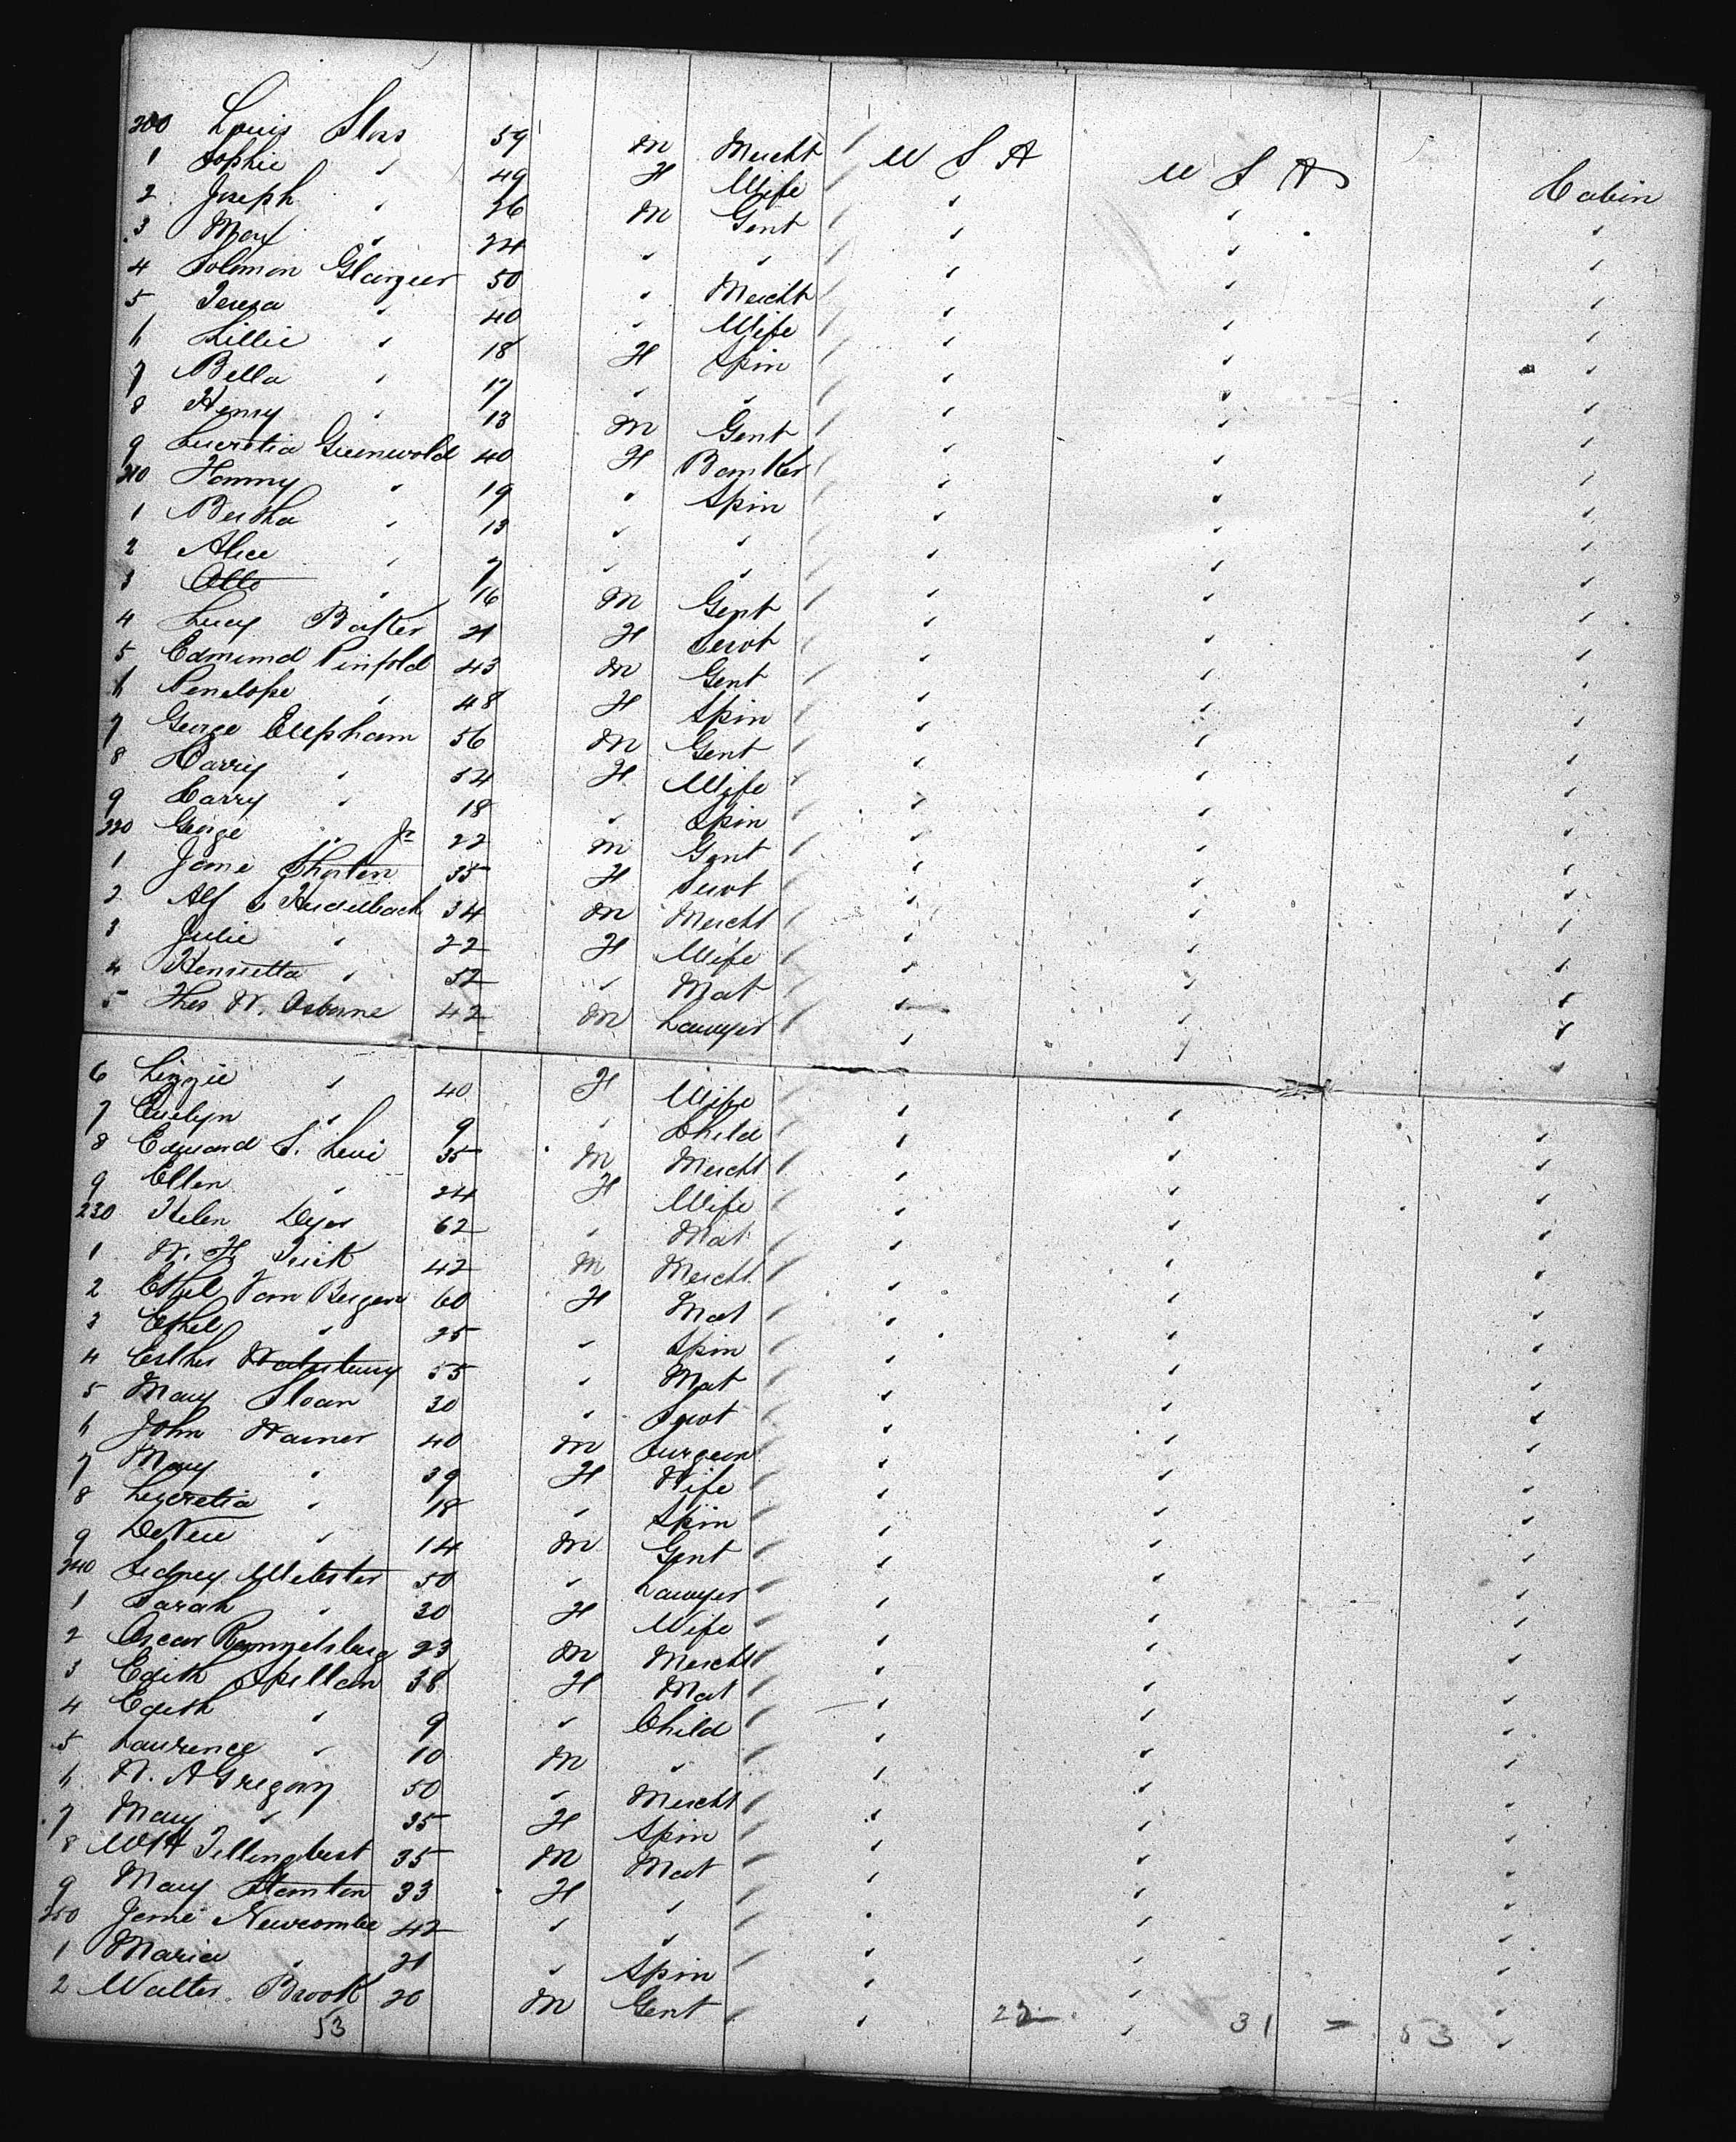 200 Louis Sloss 59 M Mercht U S A U S A Cabin
1 Sophie " 49 F Wife " " "
2 Joseph " 26 M Gent " " "
3 Max " 24 " " " " "
4 Solomon 50 " Mercht " " "
5 Teresa " 40 " Wife " " "
6 Lillie " 18 F Spin " " "
7 Bella " 17 " " " " "
8 Henry " 13 M Gent " " "
9 Lucretia Greenwold 40 F Banker " " "
210 Hanny " 19 " Spin " " "
1 Bertha " 13 " " " " "
2 Alice " 7 " " " " "
3 Otto " 16 M Gent " " "
4 Lucy Baker 21 F Servt " " "
5 Edmund Pinfold 43 M Gent " " "
6 Penelope " 48 F Spin " " "
7 George Clapham 56 M Gent " " "
8 Harry " 54 F Wife " " "
9 Carry " 18 " Spin " " "
220 George " Jr 22 M Gent " " "
1 Jane Thorten 35 F Servt " " "
2 Alf S Heidelbach 34 M Mercht " " "
3 Julie " 22 F Wife " " "
4 Henrietta " 52 " Mat " " "
5 Thos W. Osborne 42 M Lawyer " " "
6 Lizzie " 40 F Wife " " "
7 Evelyn " 9 " Child " " "
8 Edward S. Levi 35 M Mercht " " "
9 Ellen " 24 F Wife " " "
230 Helen Dyer 62 " Mat " " "
1 W. H. 42 M Mercht " " "
2 Ethel Van Bergen 60 F Mat " " "
3 Ethel " 25 " Spin " " "
4 Esther Waterbury 55 " Mat " " "
5 Mary Sloan 30 " Servt " " "
6 John Warner 40 M Surgeon " " "
7 Mary " 39 F Wife " " "
8 Lucretia " 18 " Spin " " "
9 DeVere " 14 M Gent " " "
240 Sidney Webster 50 " Lawyer " " "
1 Sarah " 30 F Wife " " "
2 Oscar 23 M Mercht " " "
3 Edith Spillan 38 F Mat " " "
4 Edith " 9 " Child " " "
5 Laurence " 10 M " " " "
6 W. A Gregory 50 " Mercht " " "
7 Mary " 35 F Spin " " "
8 Wm H Tillinghast 35 M Mat " " "
9 Mary Stanton 33 F " " " "
250 Jane Newcombe 42 " " " " "
1 Maria " 21 " Spin " " "
2 Walter Brook 20 M Gent " " "
53 22 31 = 53